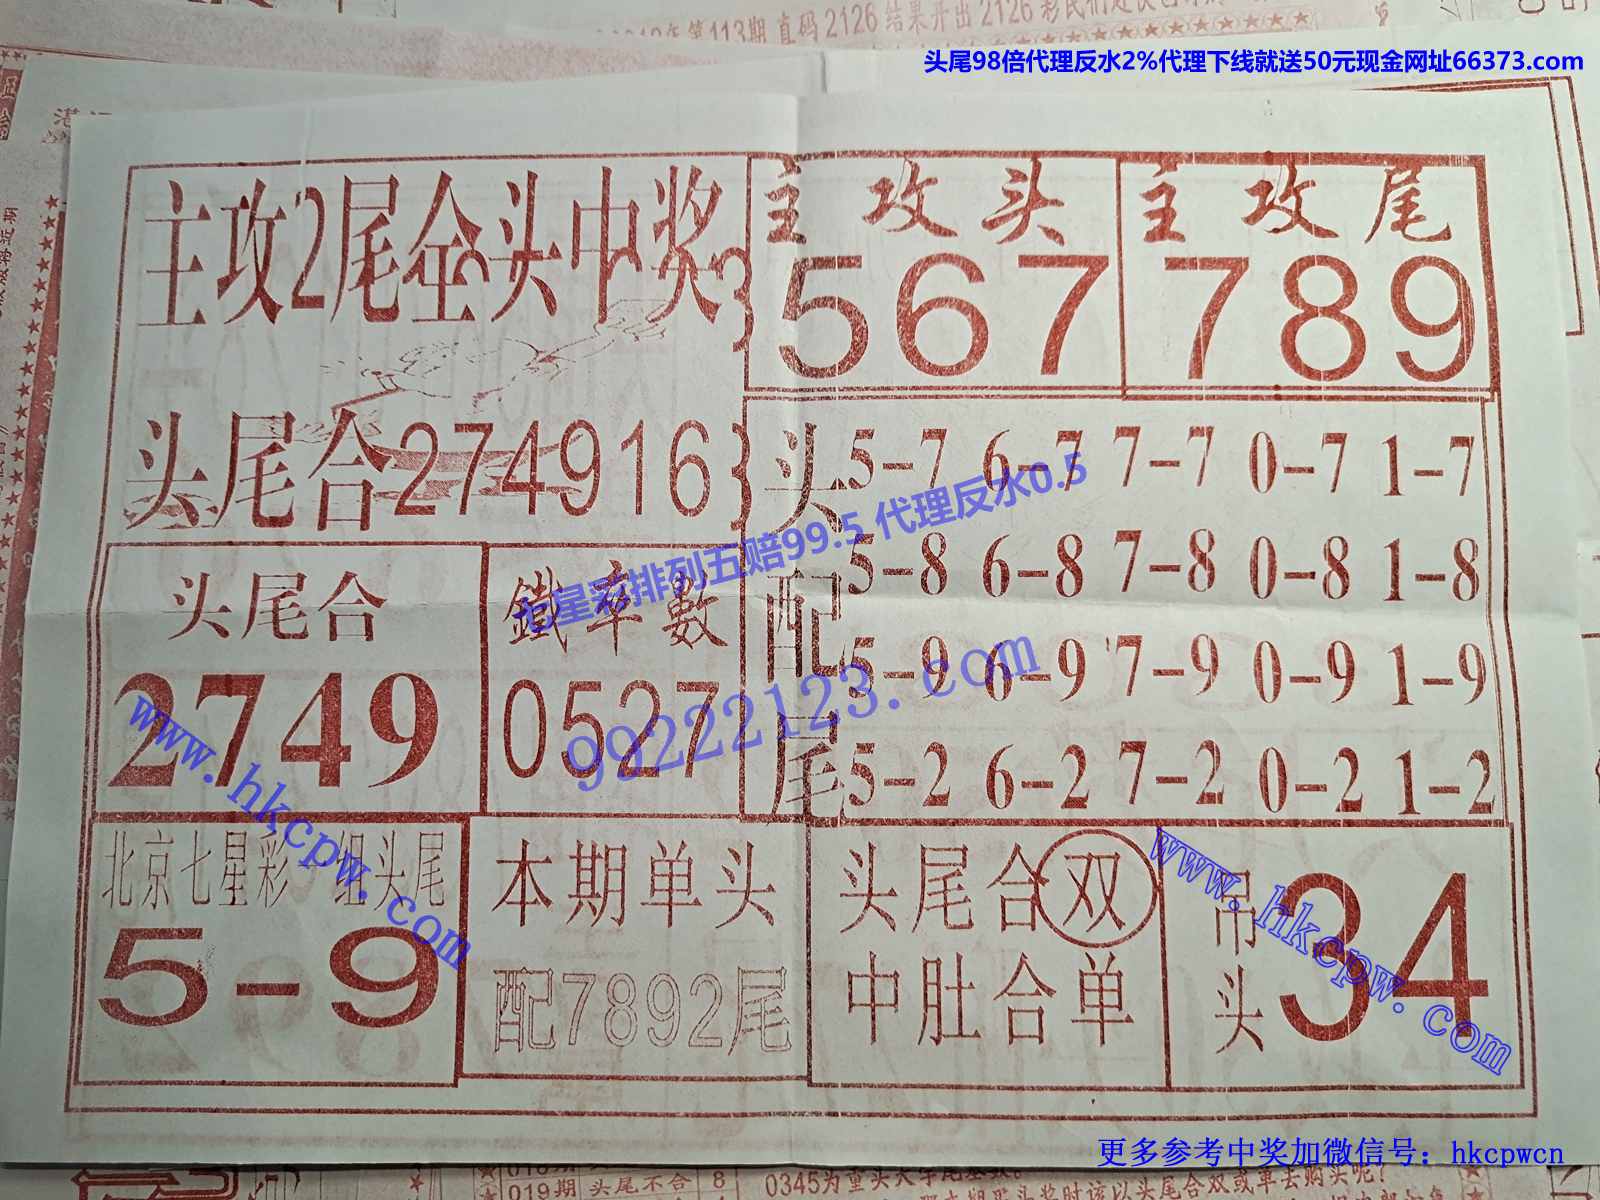 113期 直码 2126 结果开出 2126
头尾98倍代理反水2%代理下线就送50元现金网址66373.com
主攻2尾全头中奖
主攻头
567
主攻尾
789
头尾合274916
头配尾
5-7 6-7 7-7 0-7 1-7
5-8 6-8 7-8 0-8 1-8
5-9 6-9 7-9 0-9 1-9
5-2 6-2 7-2 0-2 1-2
七星彩排列五赔99.5 代理反水0.5
99222123.com
头尾合
2749
鐵率數
0527
www.hkcpw.com
北京七星彩一组头尾
5-9
本期单头
配7892尾
头尾合双
中肚合单
吊头
34
www.hkcpw.com
更多参考中奖加微信号：hkcpwcn
019期 头尾不合 8